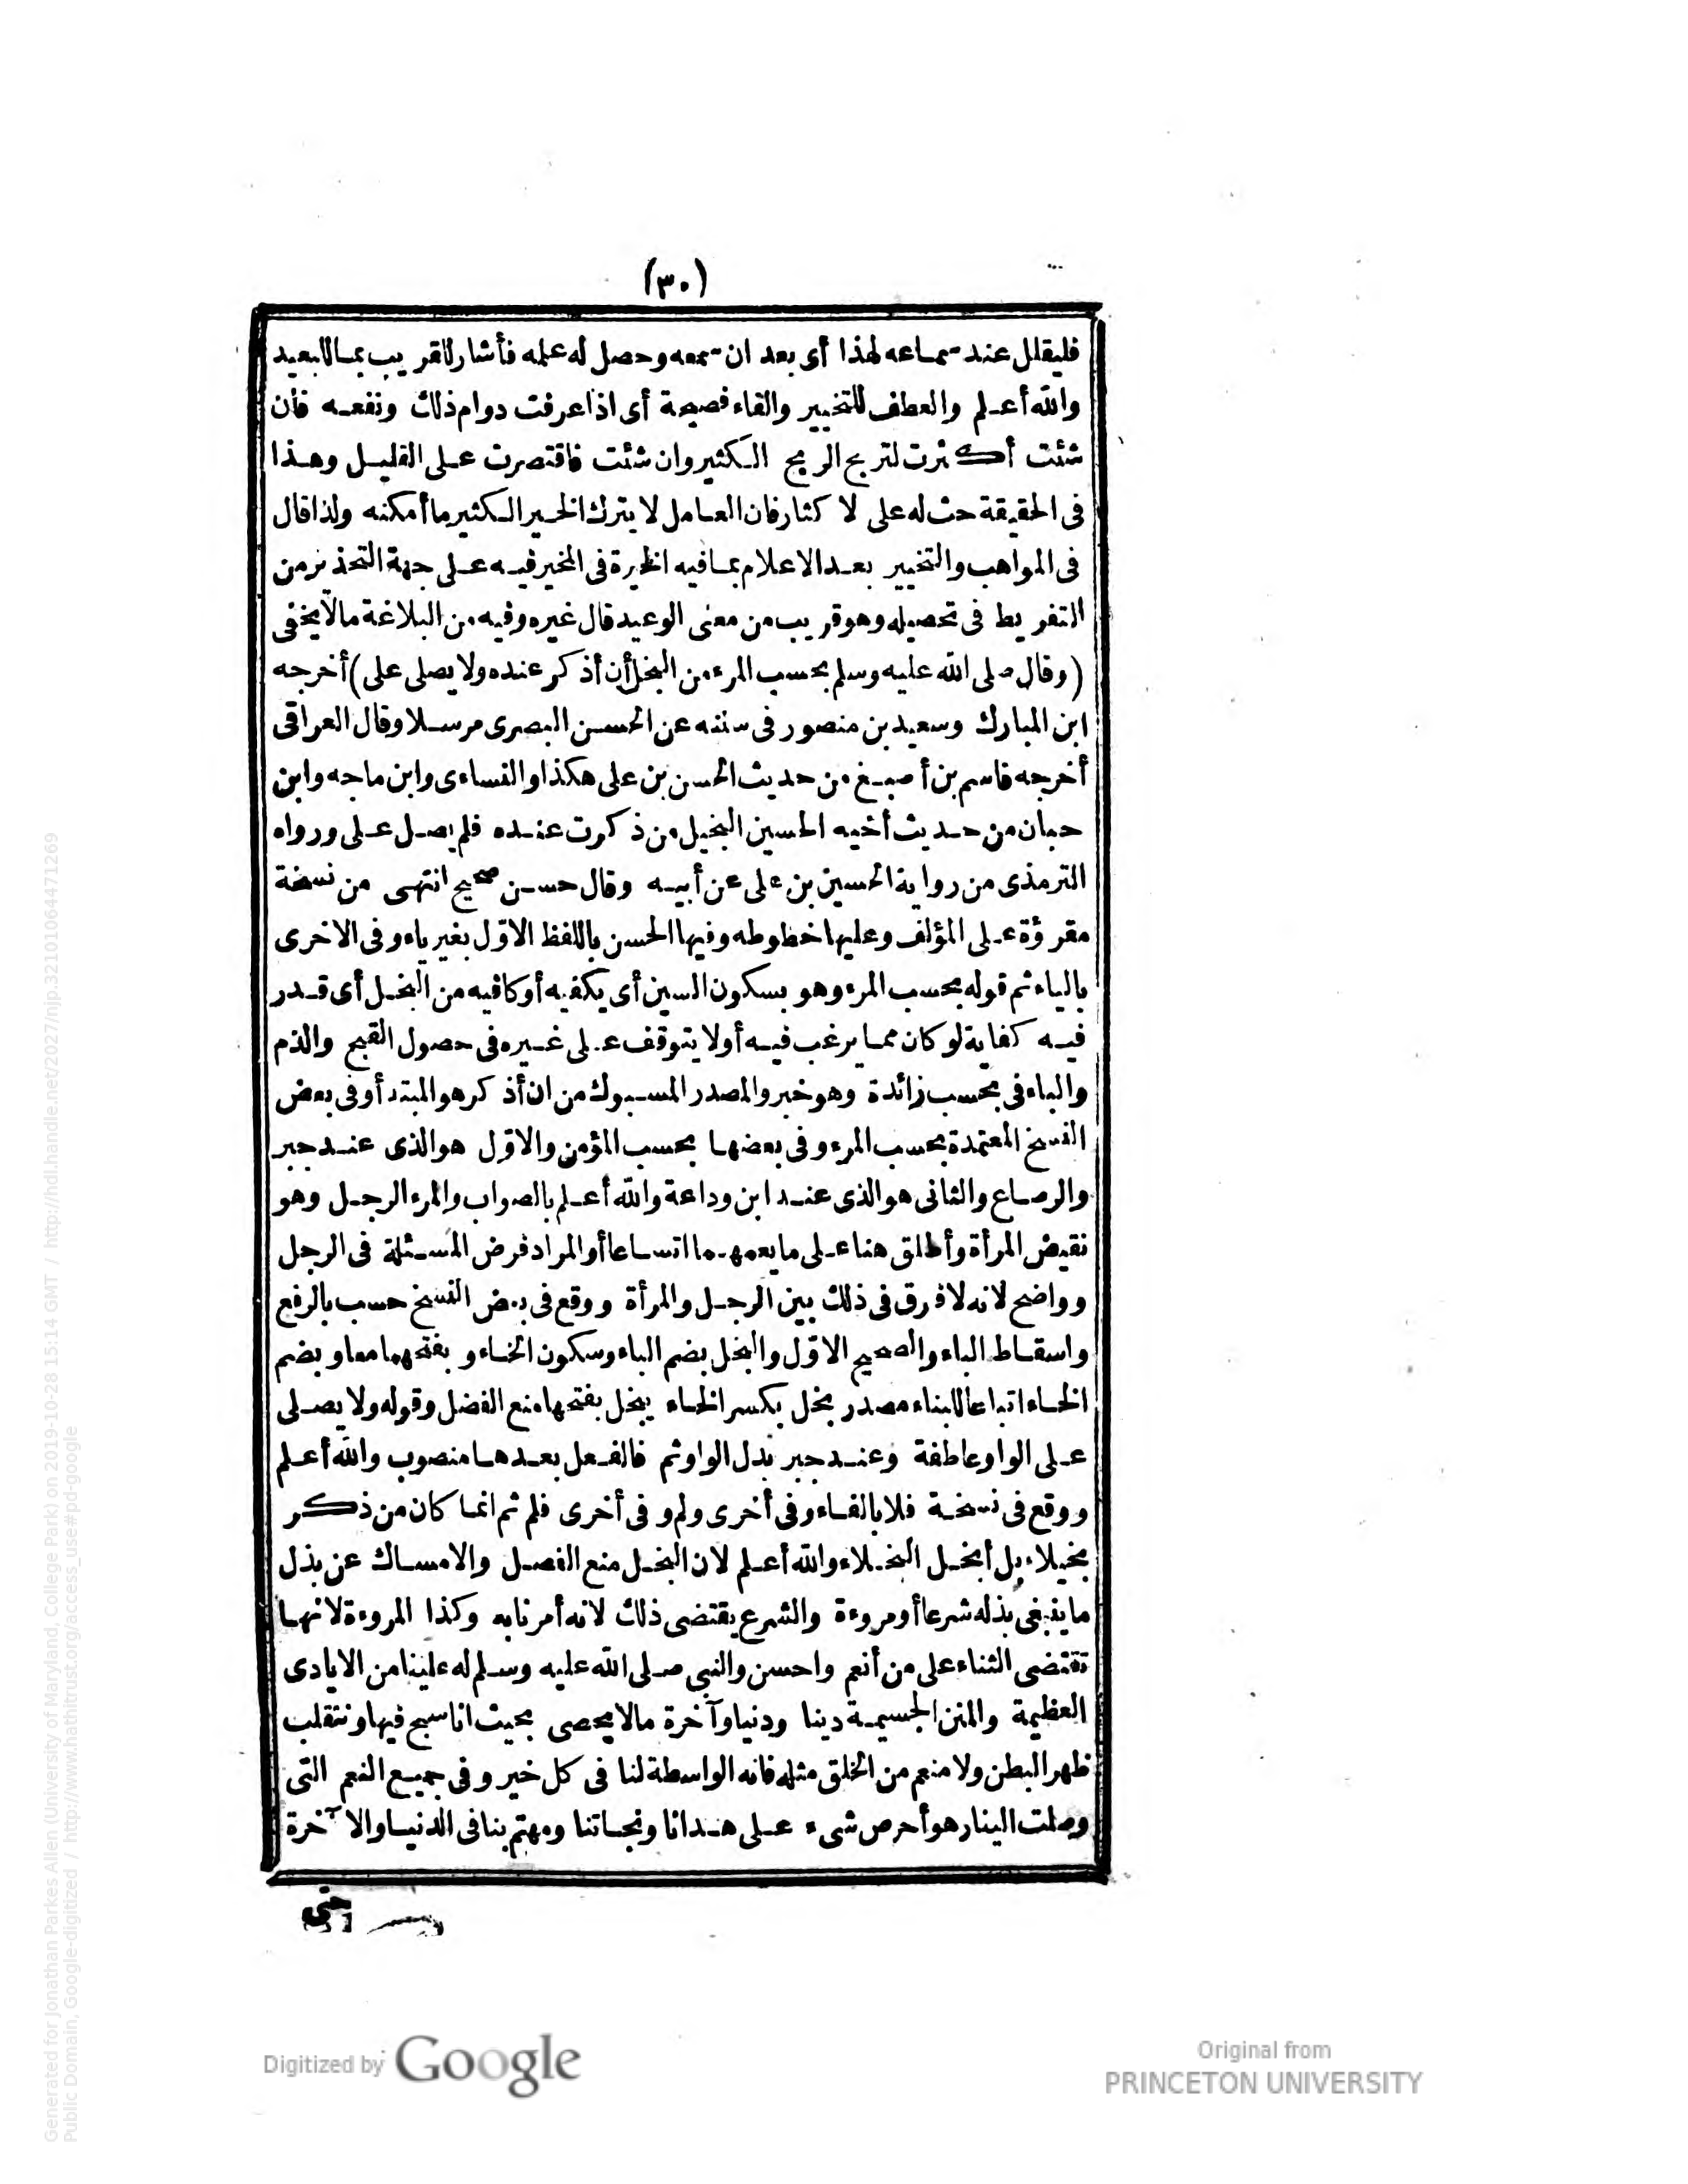 (٣٠)
فليقلل عند سماعه لهذا أى بعد ان سمعه وحصل له علمه فأشار للقريب بما للبعيد
والله أعلم والعطف للتخيير والفاء فصيحة أى اذا عرفت دوام ذلك ونفعه فأن
شئت أكثرت لتربح الربح الكثير وان شئت فاقتصرت على القليل وهذا
فى الحقيقة حث له على لا كثار فان العامل لا يترك الخير الكثير ما أمكنه ولذا قال
فى المواهب والتخيير بعد الاعلام بما فيه الخيرة فى المخير فيه على جهة التحذير من
التفريط فى تحصيله وهو قريب من معنى الوعيد قال غيره وفيه من البلاغة مالا يخفى
(وقال صلى الله عليه وسلم بحسب المرء من البخل أن أذكر عنده ولا يصلى على) أخرجه
ابن المبارك وسعيد بن منصور فى سننه عن الحسن البصرى مرسلا وقال العراقى
أخرجه قاسم بن أصبغ من حديث الحسن بن على هكذا والنساءى وابن ماجه وابن
حبان من حديث أخيه الحسين البخيل من ذكرت عنده فلم يصل على ورواه
الترمذى من رواية الحسين بن على عن أبيه وقال حسن صحيح انتهى من نسخة
مقرؤة على المؤلف وعليها خطوطه وفيها الحسن باللفظ الاول بغير ياء وفى الاخرى
بالياء ثم قوله بحسب المرء وهو بسكون السين أى يكفيه أو كافيه من البخل أى قدر
فيه كفاية لو كان مما يرغب فيه أو لا يتوقف على غيره فى حصول القبح والذم
والباء فى بحسب زائدة وهو خبر والمصدر المسبوك من ان أذكر هو المبتدأ وفى بعض
النسخ المعتمدة بحسب المرء وفى بعضها بحسب المؤمن والاول هو الذى عند جبر
والرصاع والثانى هو الذى عند ابن وداعة والله أعلم بالصواب والمرء الرجل وهو
نقيض المرأة وأطلق هنا على ما يعمهما اتساعا أو المراد فرض المسئلة فى الرجل
وواضح لانه لا فرق فى ذلك بين الرجل والمرأة ووقع فى بعض النسخ حسب بالرفع
واسقاط الباء والصحيح الاول والبخل بضم الباء وسكون الخاء وبفتحهما معا وبضم
الخاء اتباعا للبناء مصدر بخل بكسر الخاء يبخل بفتحها منع الفضل وقوله ولا يصلى
على الواو عاطفة وعند جبر بدل الواو ثم فالفعل بعدها منصوب والله أعلم
ووقع فى نسخة فلا بالفاء وفى أخرى ولم وفى أخرى فلم ثم انما كان من ذكر
بخيلا بل أبخل البخلاء والله أعلم لان البخل منع الفضل والامساك عن بذل
ما ينبغى بذله شرعا أو مروءة والشرع يقتضى ذلك لانه أمرنا به وكذا المروءة لانها
تقتضى الثناء على من أنعم واحسن والنبى صلى الله عليه وسلم له علينا من الايادى
العظيمة والمنن الجسيمة دينا ودنيا وآخرة مالا يحصى بحيث انا سبح فيها ونتقلب
ظهر البطن ولا منعم من الخلق مثله فانه الواسطة لنا فى كل خير وفى جميع النعم التى
وصلت الينا وهو أحرص شىء على هدانا ونجاتنا ومهتم بنا فى الدنيا والآخرة
حتى
Digitized by Google
Original from
PRINCETON UNIVERSITY
Generated for Jonathan Parkes Allen (University of Maryland, College Park) on 2019-10-28 15:14 GMT / http://hdl.handle.net/2027/njp.32101064471269
Public Domain, Google-digitized / http://www.hathitrust.org/access_use#pd-google